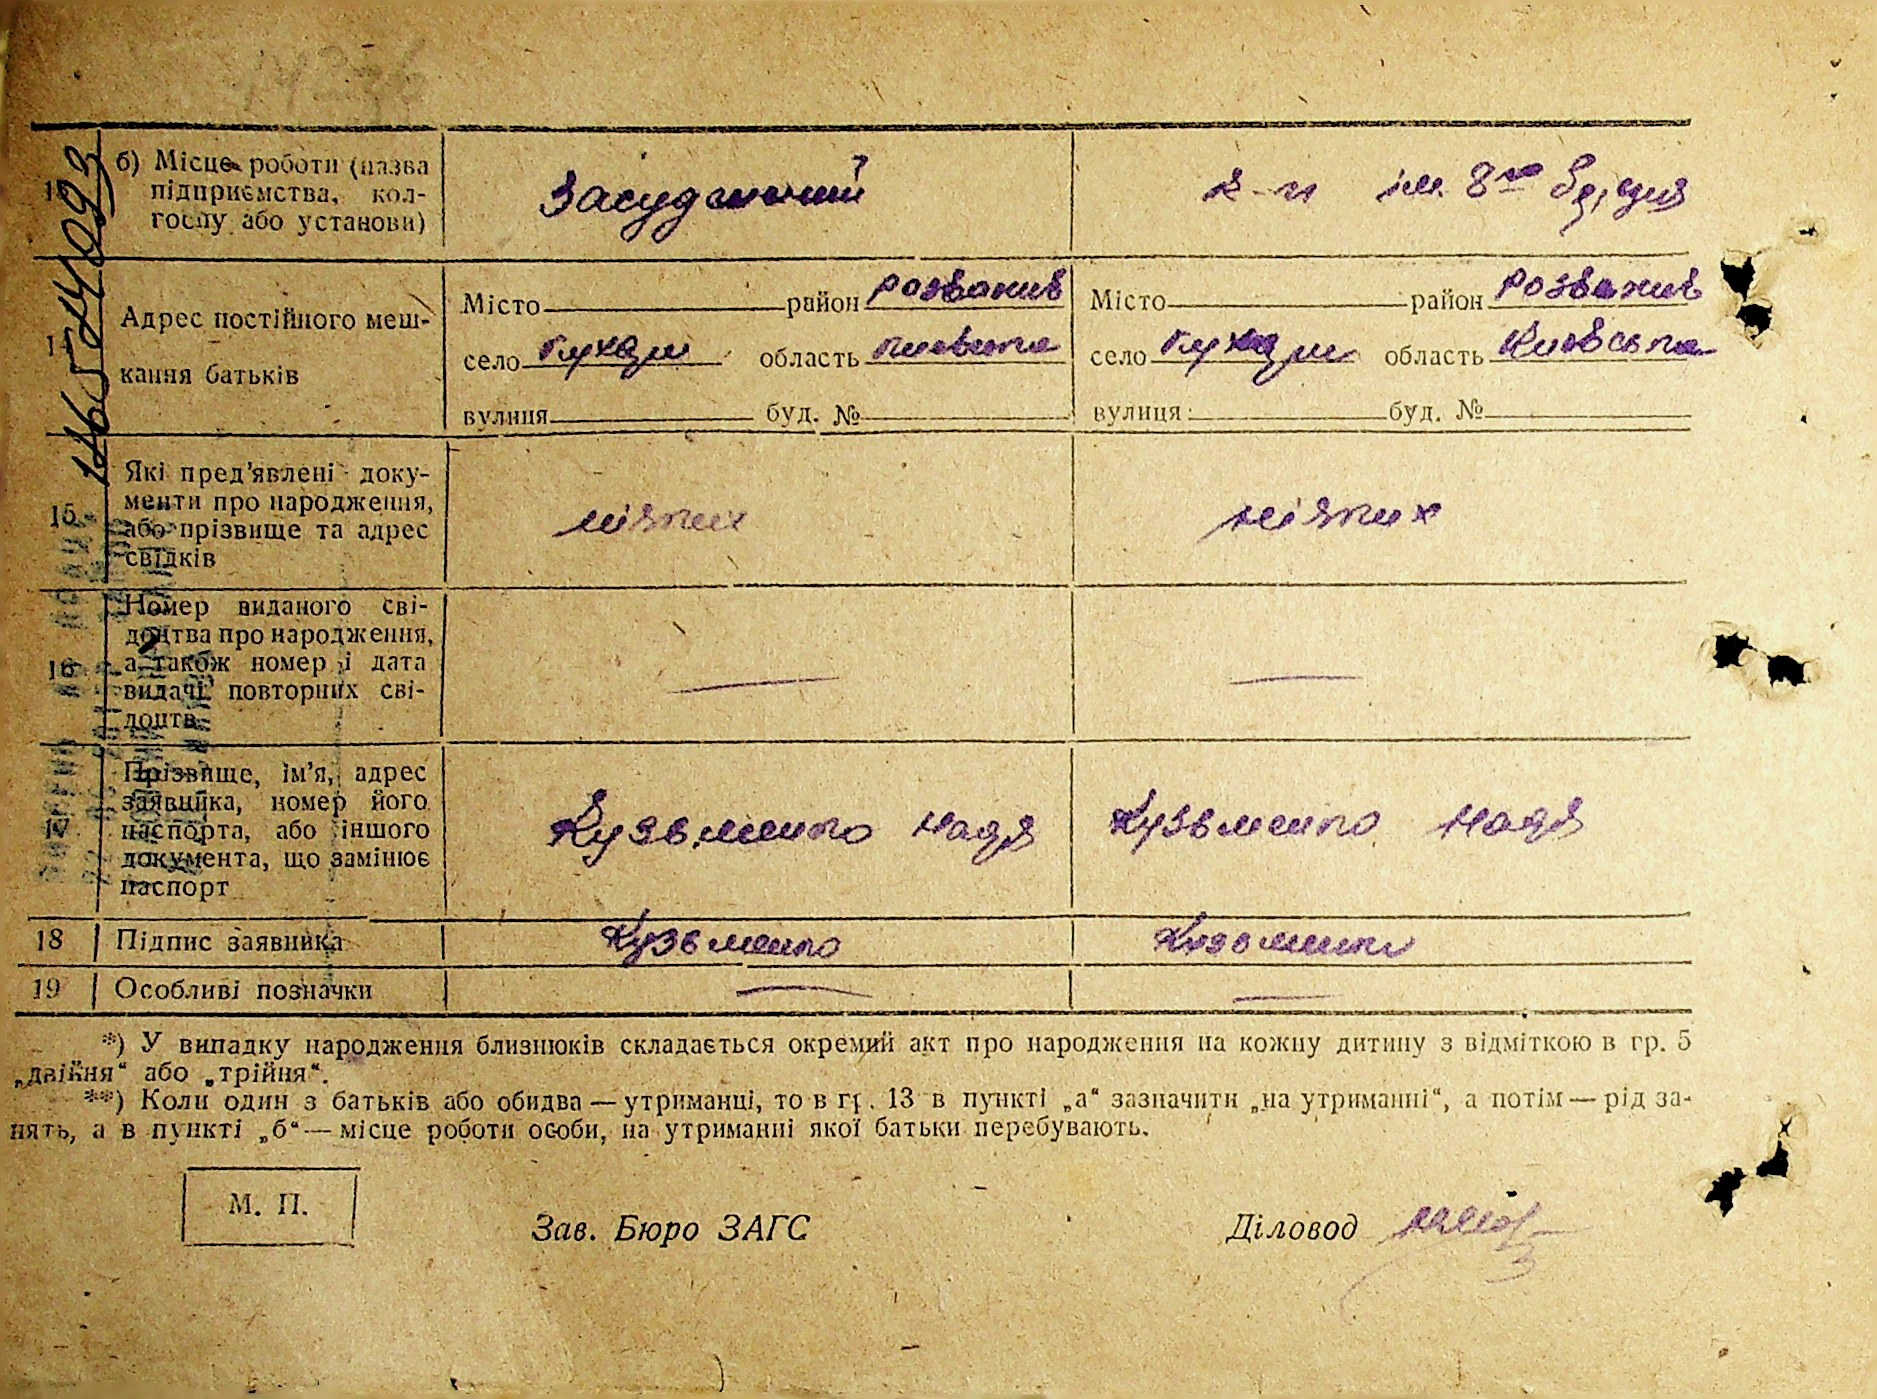 б) Місце роботи (назва
підприємства, кол-
госпу або установи)
Засуджений
к-п ім. 8го
Адрес постійного меш-
кання батьків
Місто район Розважів
село Глухари область Київська
вулиця буд. №
Місто район Розважів
село Глухари область Київська
вулиця буд. №
15
Які пред’явлені доку-
менти про народження,
або прізвище та адрес
свідків
ніяких
ніяких
16
Номер виданого сві-
доцтва про народження,
а також номер і дата
видачі повторних сві-
доцтв
17
Прізвище, ім’я, адрес
заявника, номер його
паспорта, або іншого
документа, що замінює
паспорт
Кузьменко Надя
Кузьменко Надя
18 Підпис заявника Кузьменко Кузьменко
19 Особливі позначки
*) У випадку народження близнюків складається окремий акт про народження на кожну дитину з відміткою в гр. 5
„двійня“ або „трійня“.
**) Коли один з батьків або обидва — утриманці, то в гр. 13 в пункті „а“ зазначити „на утриманні“, а потім — рід за-
нять, а в пункті „б“ — місце роботи особи, на утриманні якої батьки перебувають.
М. П.
Зав. Бюро ЗАГС
Діловод